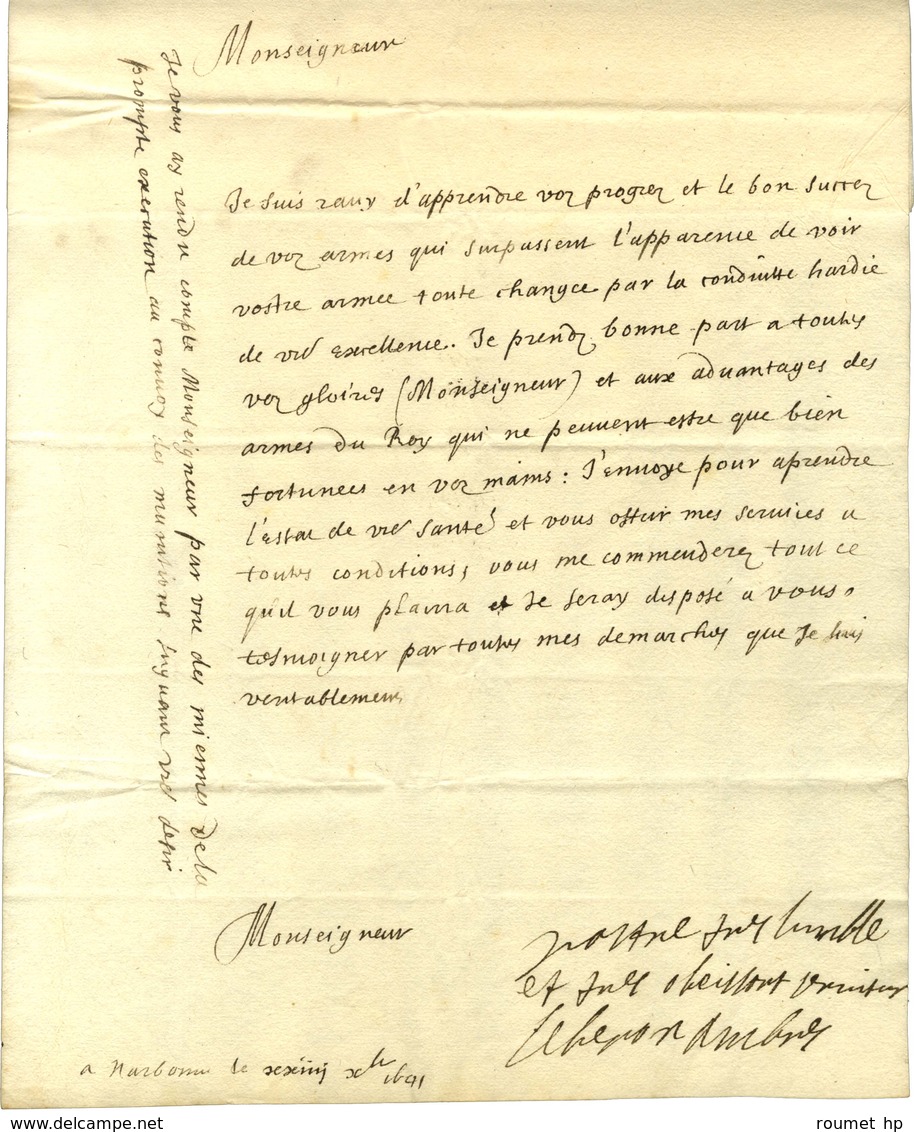 Monseigneur
Je suis ravy d'apprendre voz progrez et le bon succez
de voz armes qui surpassent l'apparence de voir
vostre armee toute changee par la conduitte hardie
de vre excellence. Je prendz bonne part a toutes
voz gloires (Monseigneur) et aux advantages des
armes du Roy qui ne peuvent estre que bien
fortunees en voz mains: J'envoye pour aprendre
l'estat de vre santé et vous offrir mes services a
toutes conditions, vous me commenderez tout ce
qu'il vous plaira et Je seray disposé a vous
tesmoigner par toutes mes demarches que Je suis
veritablement
Je vous ay rendu compte Monseigneur par une des miennes de la
prompte execution au convoy des munitions suyvant vre desir
Monseigneur
vostre tres humble
et tres obeissant serviteur
le baron d'Ambres
a Narbonne le xxiiij xbr 1641
roumet hp